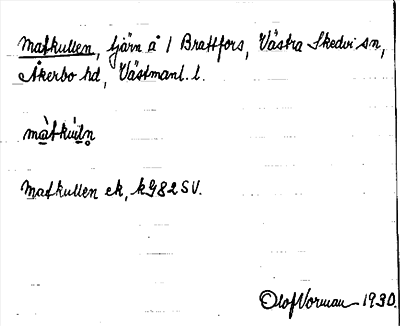 Matkullen, tjärn å 1 Brattfors, Västra Skedvi sn,
Åkerbo hd, Västmanl. l.
Matkullen ek, kG82SV.
Olof Vorman 1930.